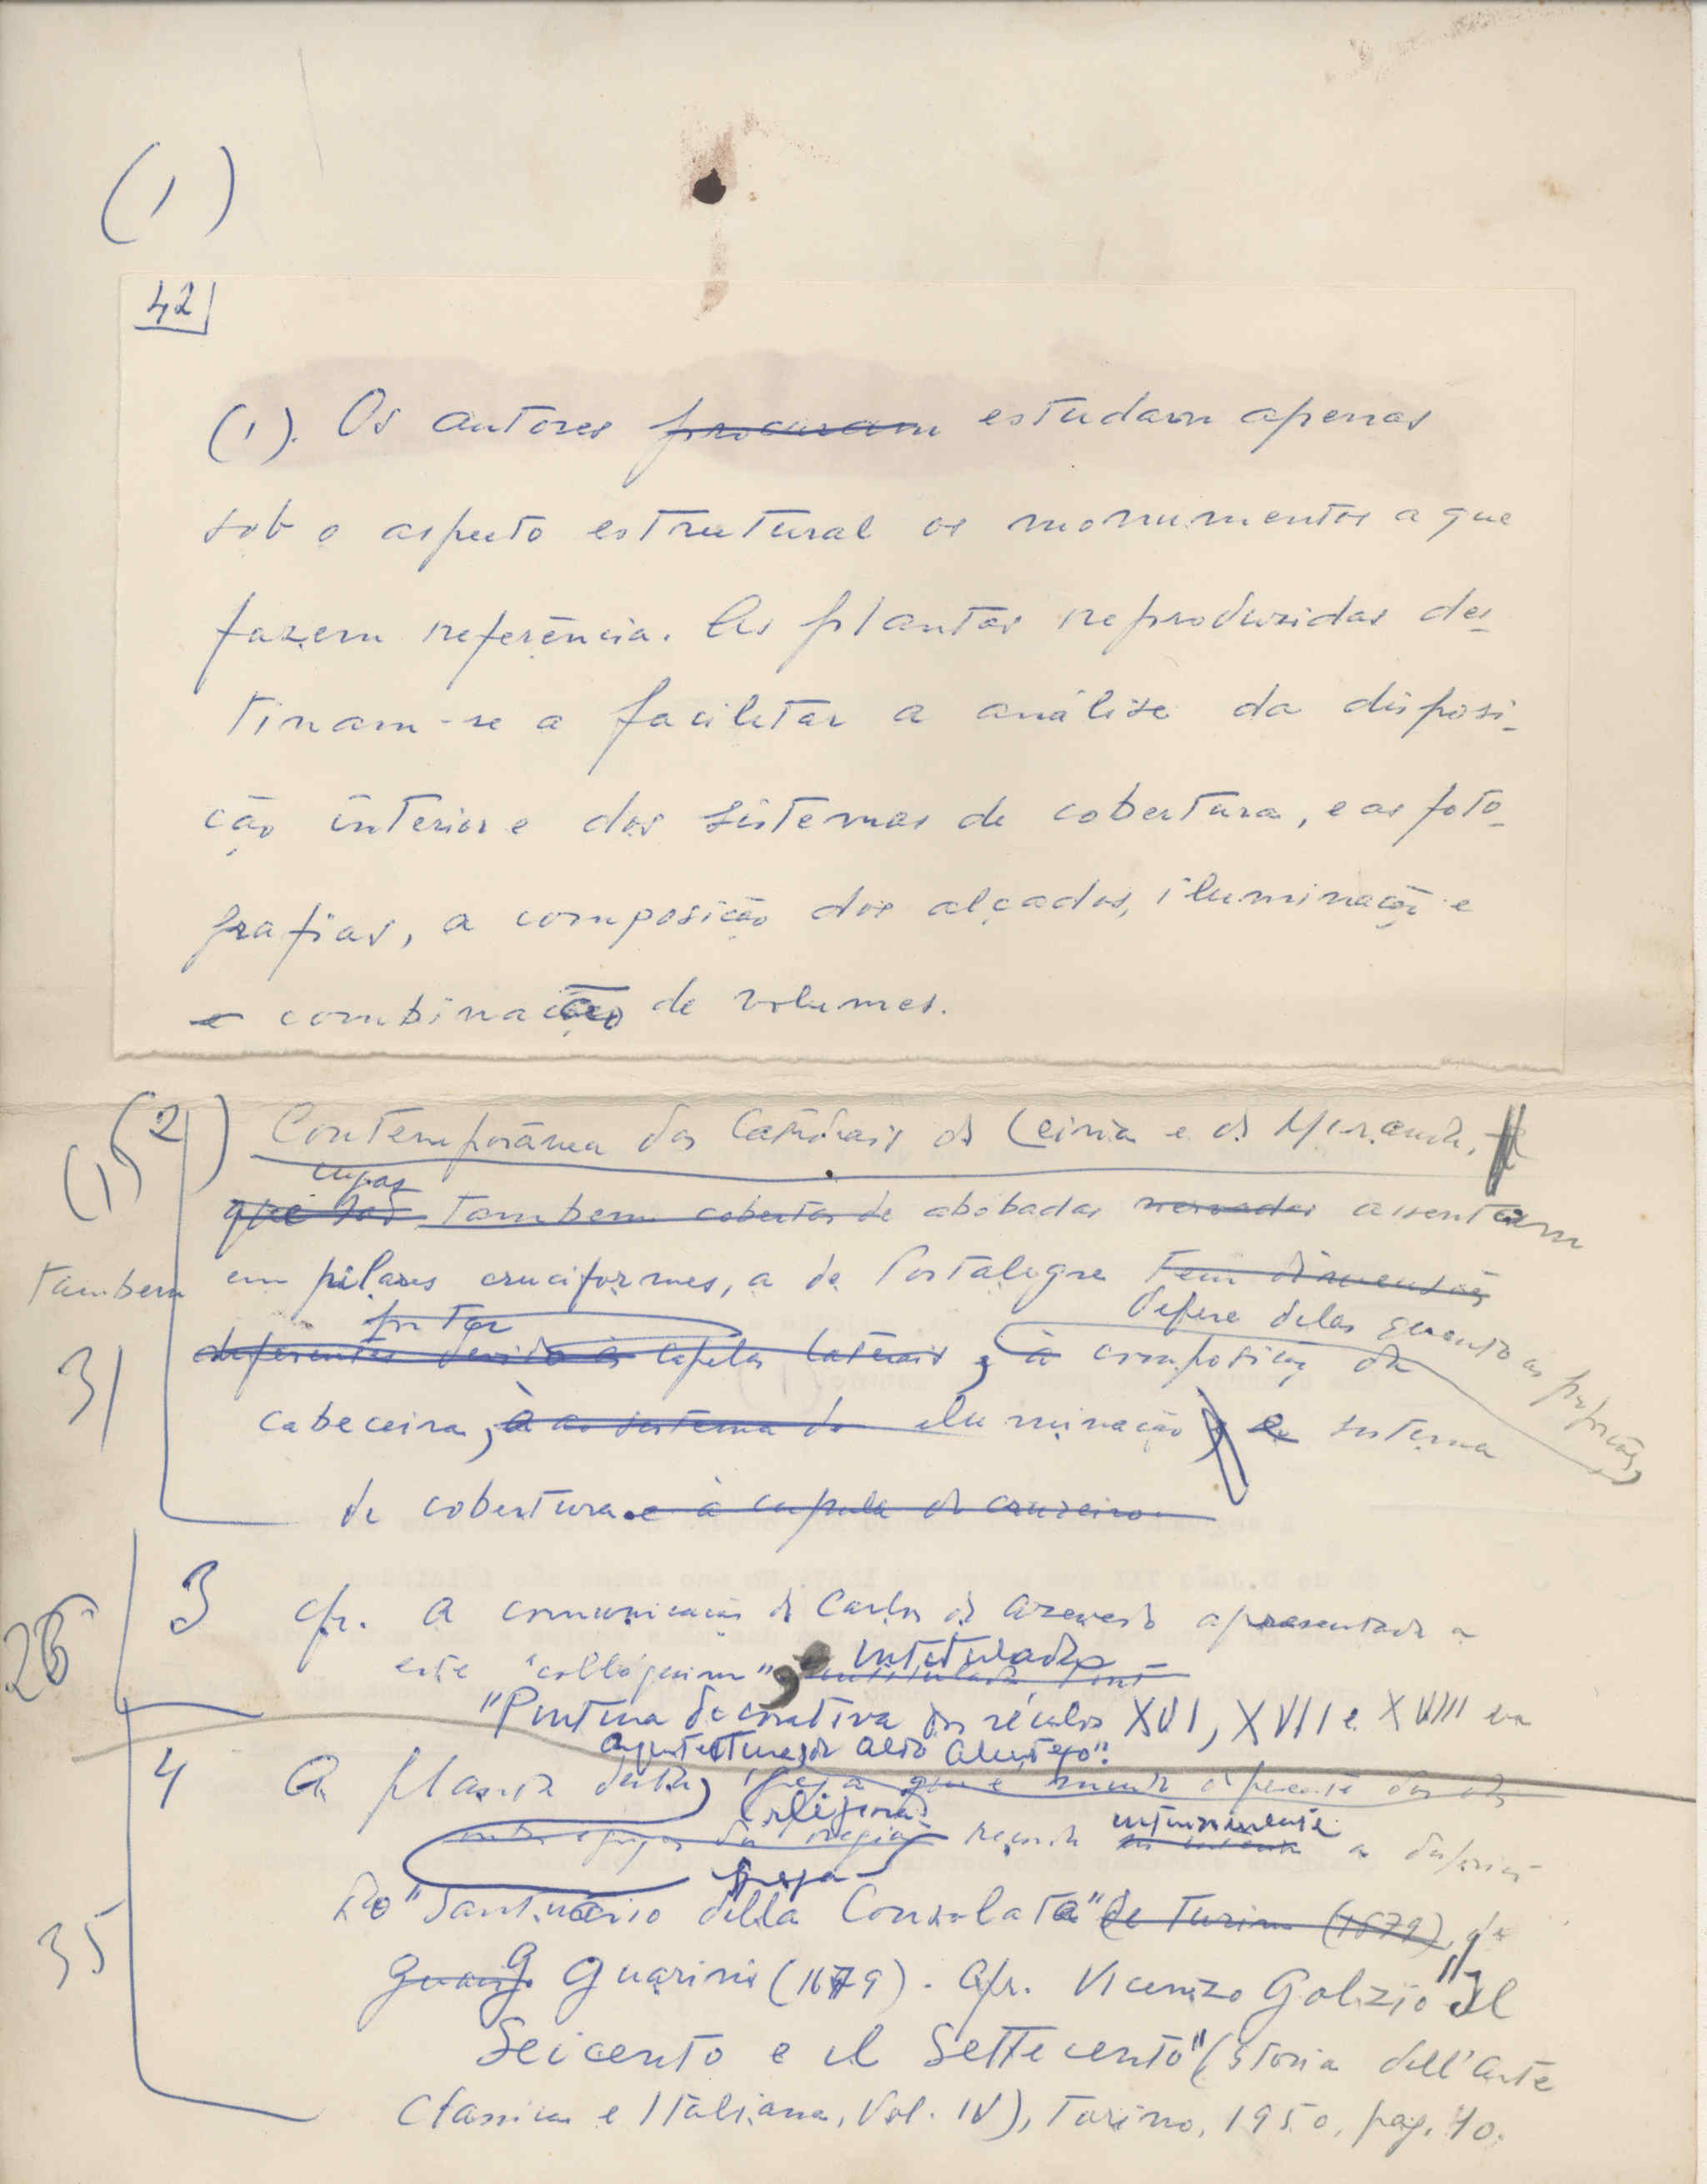 (1)
42
(1). Os autores procuram estudam apenas
sob o aspecto estrutural os monumentos a que
fazem referência. As plantas reproduzidas des-
tinam-se a facilitar a análise da disposi-
ção interior e dos sistemas de cobertura, e as foto-
grafias, a composição dos alçados, iluminação e
e combinação de volumes.
(1) (2) Contemporânea das Catedrais de Leiria e de Miranda,
cujas
que são tambem cobertas de abobadas nervadas assentam
tambem em pilares cruciformes, a de Portalegre tem dimensões
difere delas quanto as proporções,
31
diferentes devido às capelas laterais, à composição da
cabeceira, à ao sistema de iluminação e sistema
de cobertura. e à cupula do cruzeiro
26
3 cfr. A comunicação de Carlos de Azevedo apresentada a
este "colloquium", intitulada
"Pintura decorativa dos séculos XVI, XVII e XVIII na
arquitectura do Alto Alentejo".
4 A planta desta
original
da região recorda intimamente a
igreja
35
do "Santuário della Consolata" de Turim (1679), de
Guarini (1679). Cfr. Vicenzo Golzio "Il
Seicento e il Settecento" (Storia dell'Arte
Classica e Italiana, Vol. IV), Torino, 1950, pag. 40.